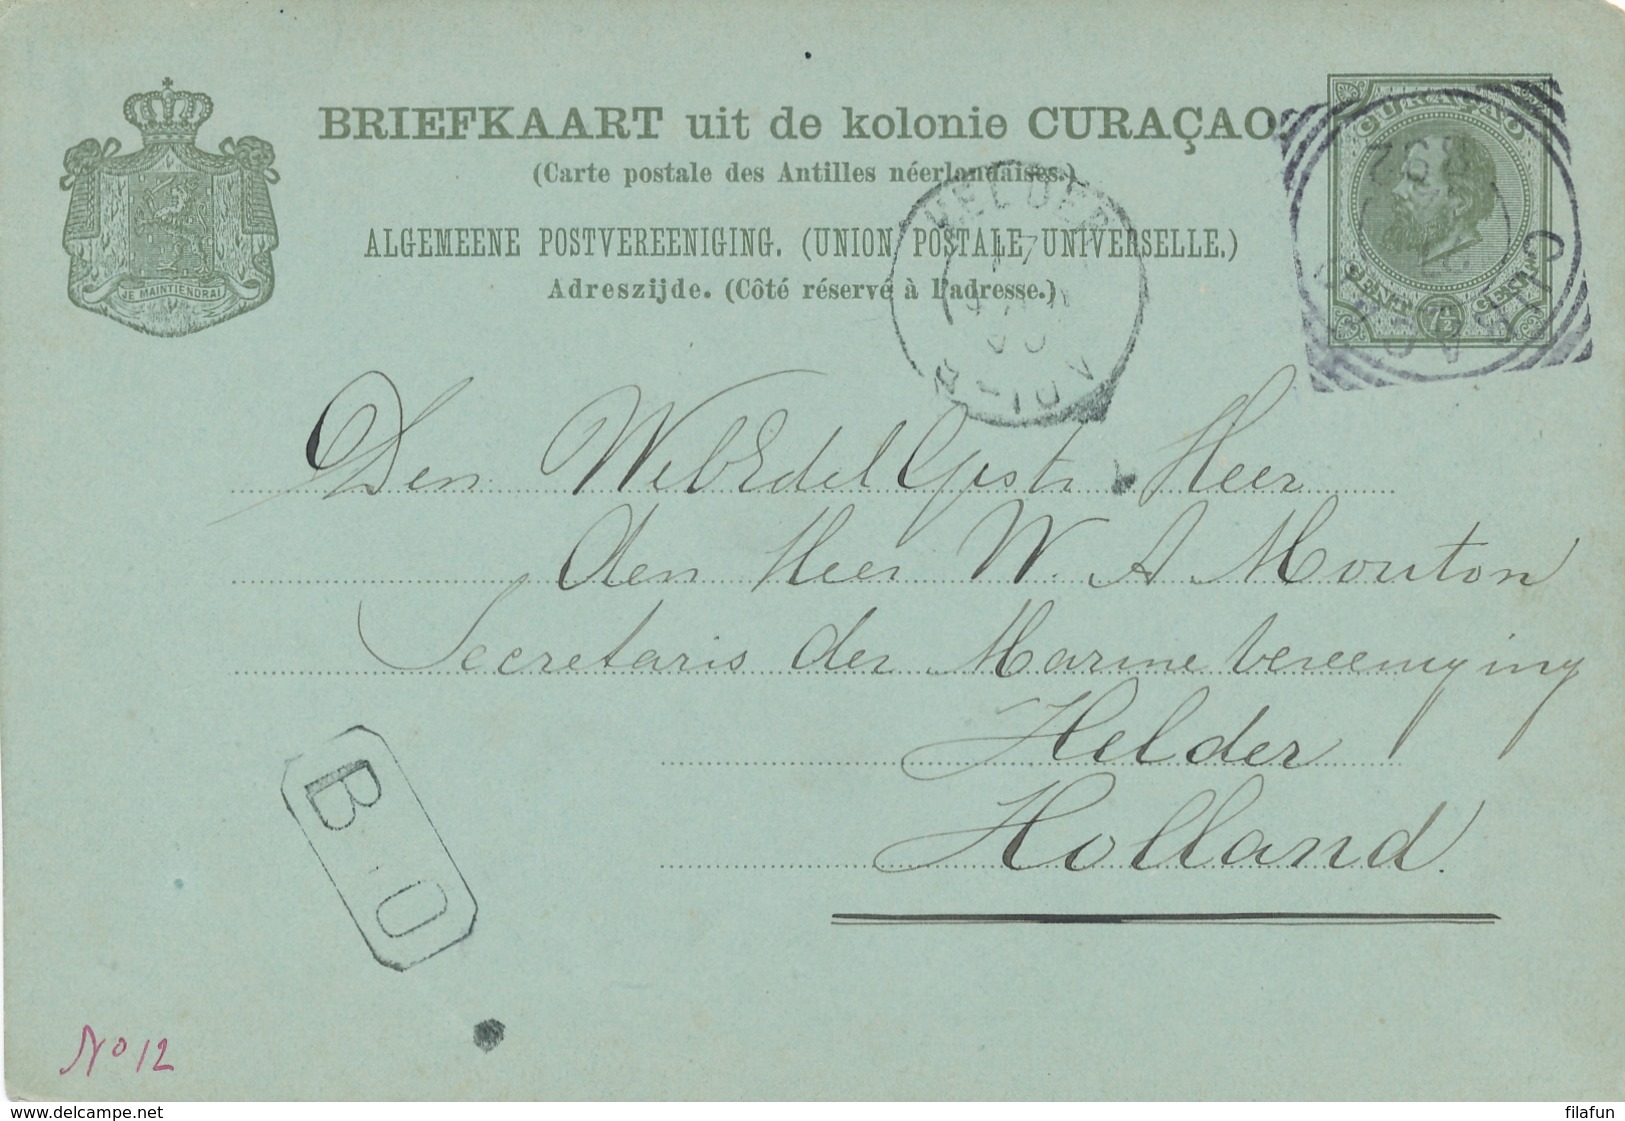 BRIEFKAART uit de kolonie CURAÇAO.
(Carte postale des Antilles néerlandaises.)
ALGEMEENE POSTVEREENIGING. (UNION POSTALE UNIVERSELLE.)
Adreszijde. (Côté réservé à l'adresse.)
JE MAINTIENDRAI
CURAÇAO
CENT 7½ CENT
HELDER
Den WelEdel Gestr Heer
den Heer W. A. Mouton
Secretaris der Marine Vereeniging
Helder
Holland.
B.O
No 12
www.delcampe.net
filafun